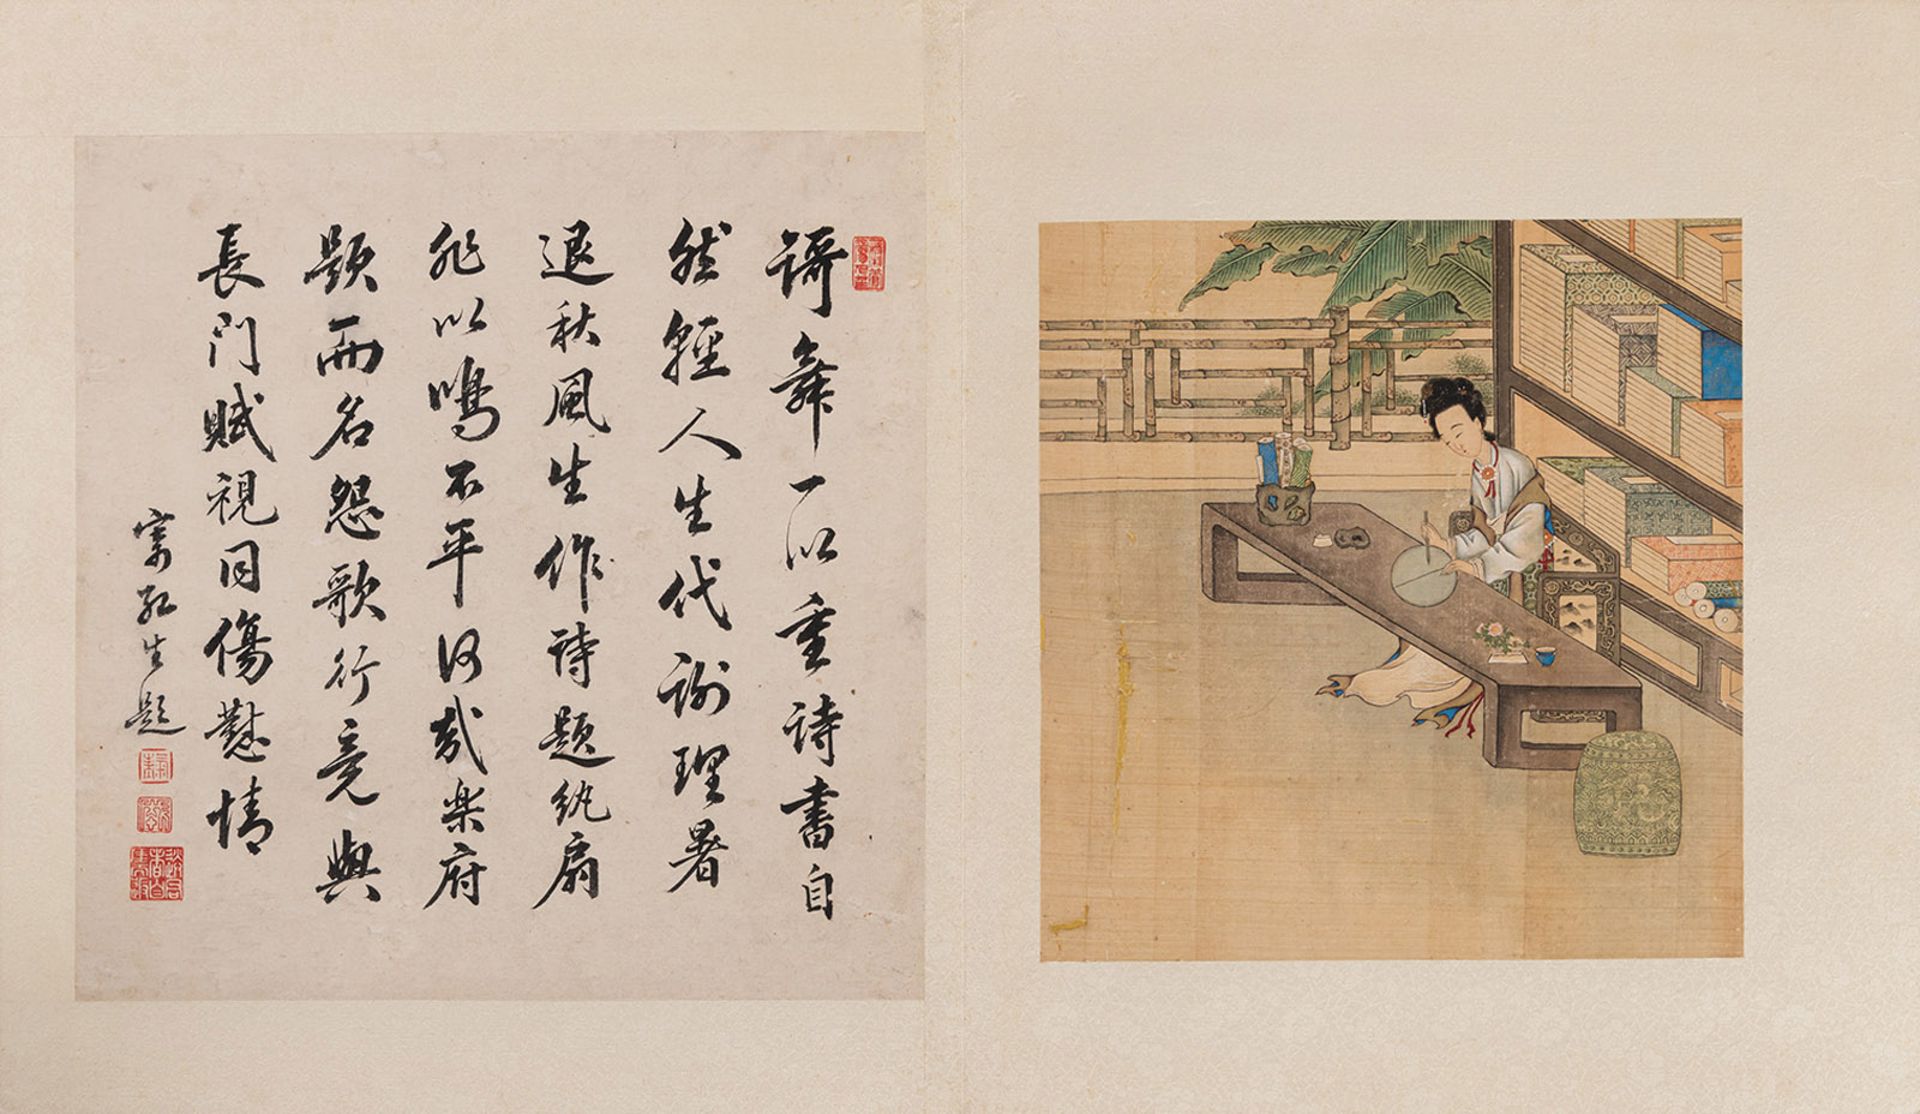 謌舞一以重詩書自
然輕人生代謝理暑
退秋風生作詩題紈扇
非以鳴不平何哉樂府
題而名怨歌行竟與
長門賦視同傷懟情
生題